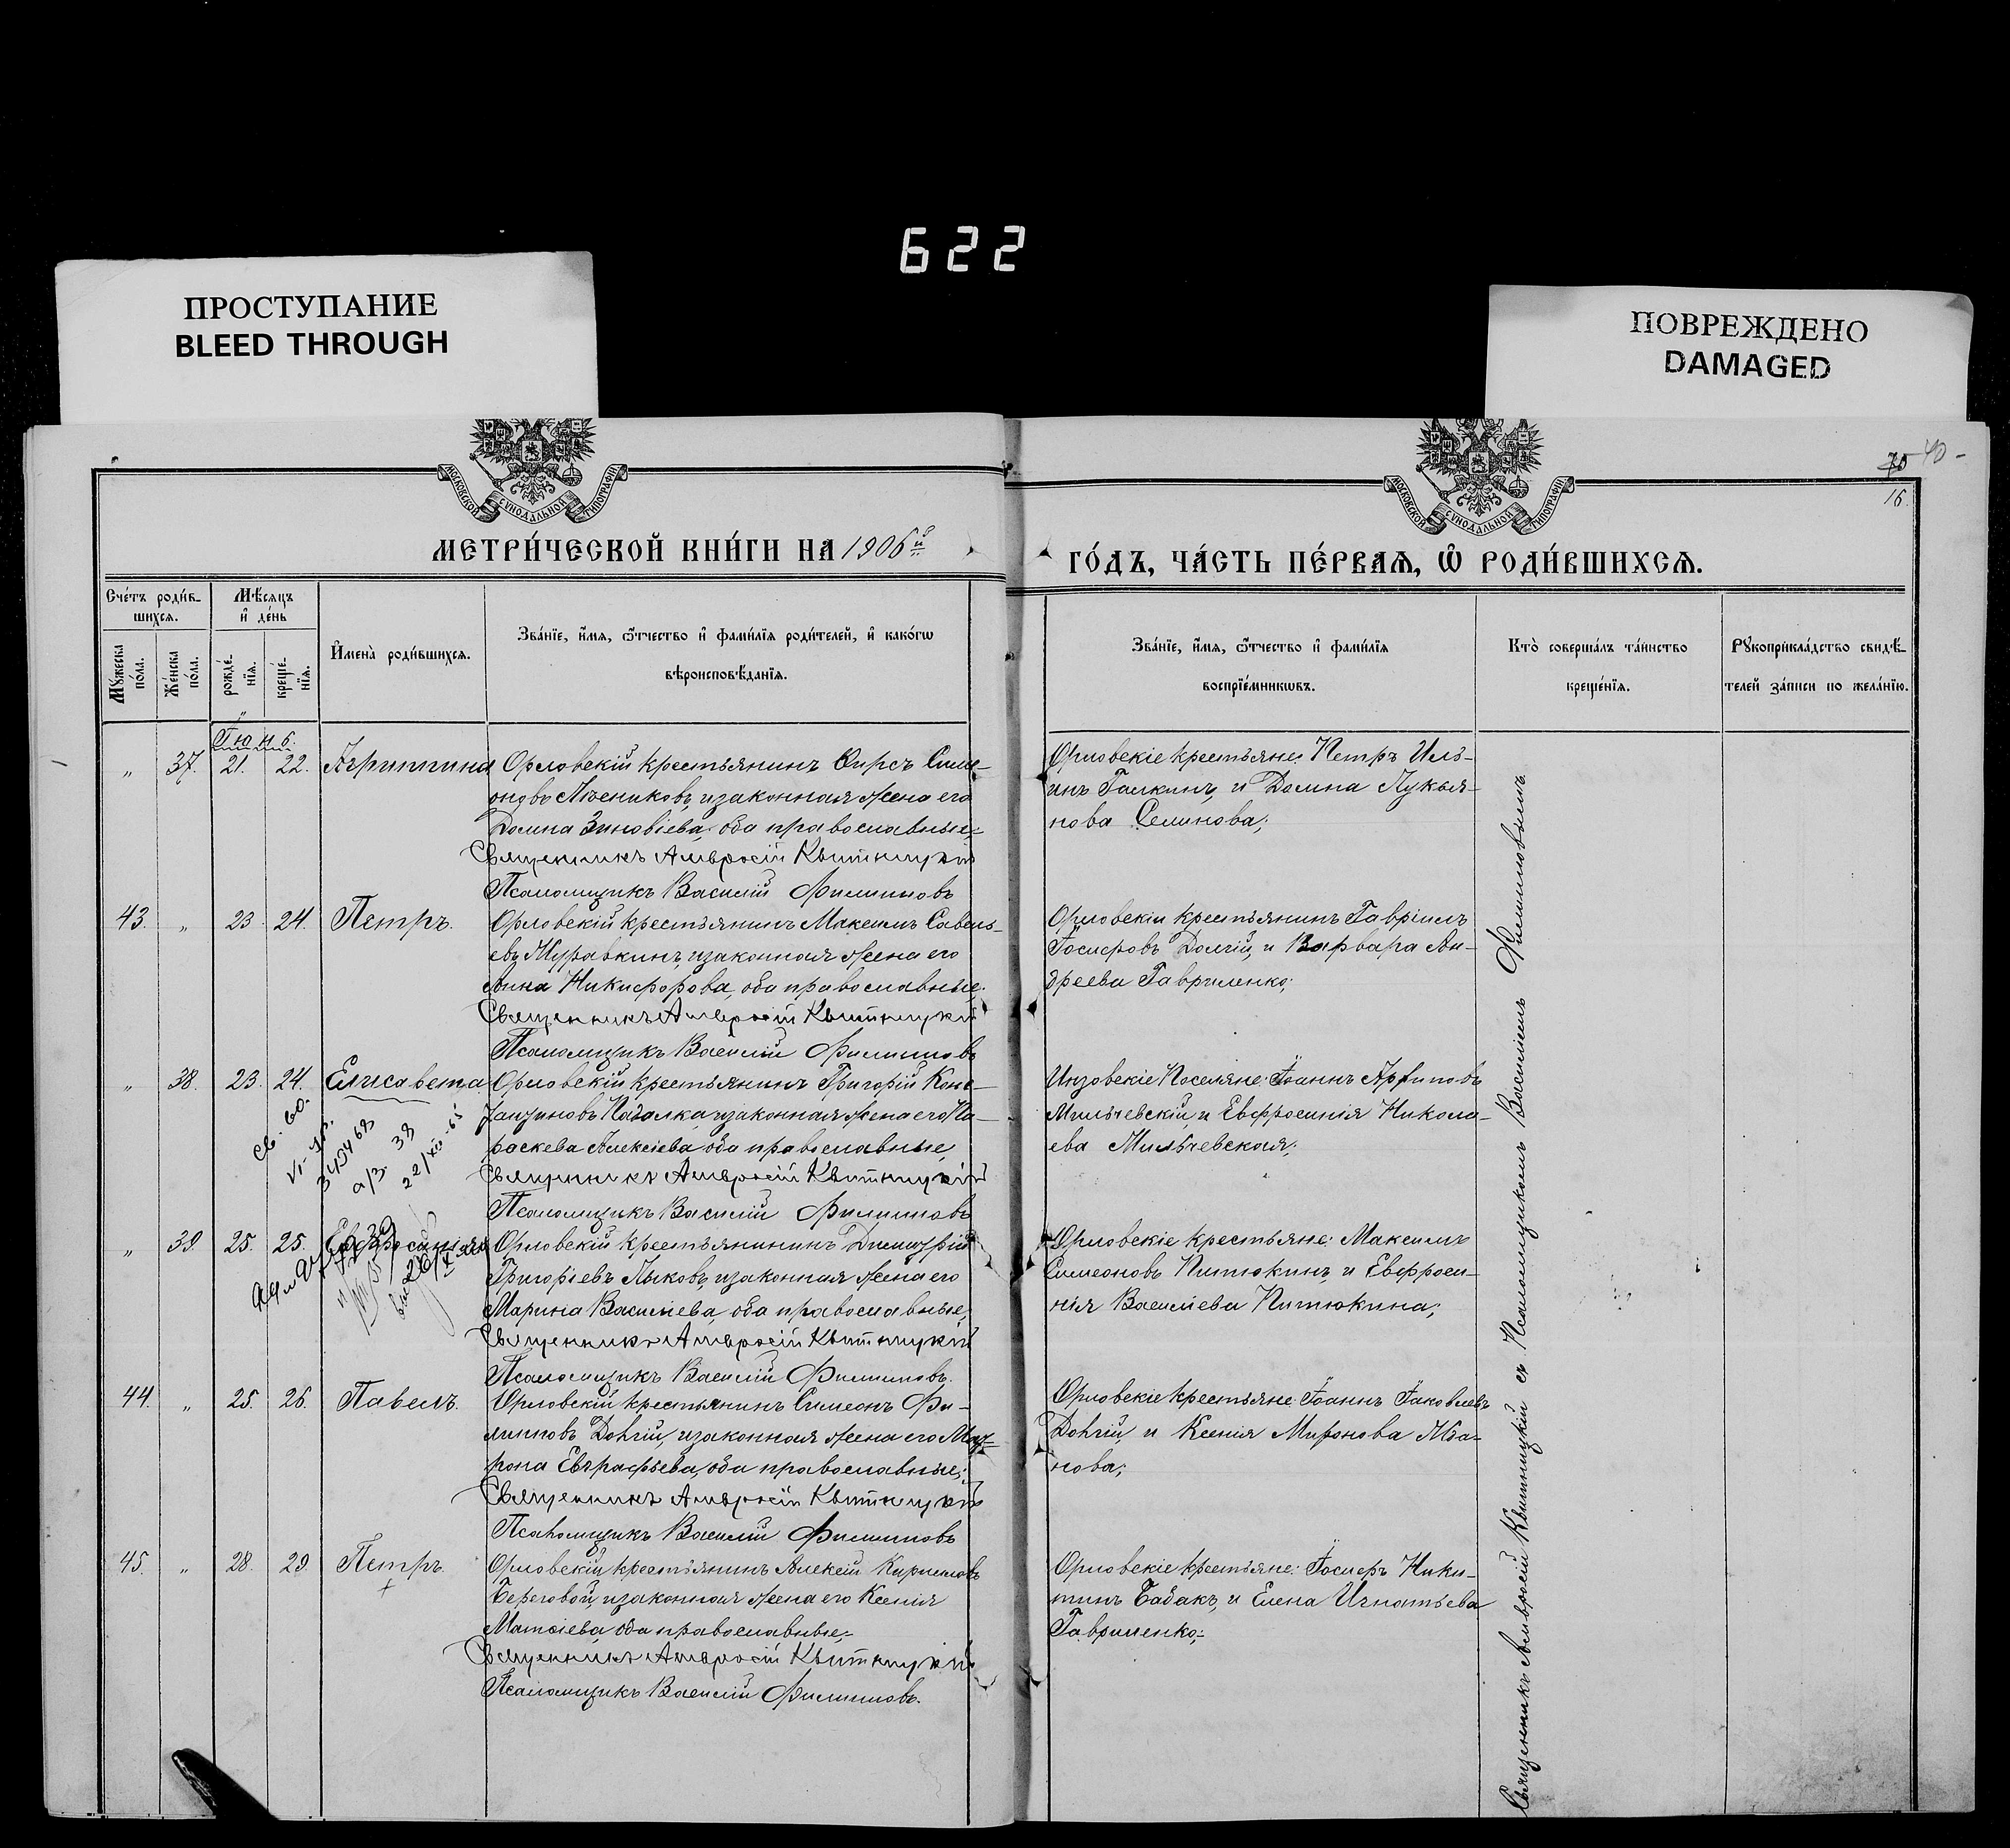 622
ПРОСТУПАНИЕ
BLEED THROUGH
ПОВРЕЖДЕНО
DAMAGED
МОСКОВСКОЙ СѴНОДАЛЬНОЙ ТИПОГРАФІИ
МОСКОВСКОЙ СѴНОДАЛЬНОЙ ТИПОГРАФІИ
70 40-
16.
МЕТРИ́ЧЕСКОЙ КНИ́ГИ НА 1906й
ГО́ДЪ, ЧА́СТЬ ПЕ́РВАѦ, Ѡ҆ РОДИ́ВШИХСѦ.
Сче́тъ роди́в-
шихсѧ.
Мѣ́сѧцъ
и҆ де́нь
Мꙋ́жеска
по́ла.
Же́нска
по́ла.
рожде́-
нїѧ.
креще́-
нїѧ.
И҆мена̀ роди́вшихсѧ.
Зва́нїе, и҆́мѧ, ѻ҆́тчество и҆ фами́лїѧ роди́телей, и҆ како́гѡ
вѣроисповѣ́данїѧ.
Зва́нїе, и҆́мѧ, ѻ҆́тчество и҆ фами́лїѧ
воспрїе́мникѡвъ.
Кто̀ соверша́лъ та́инство
креще́нїѧ.
Рꙋкоприкла́дство свидѣ́-
телей за́писи по жела́нїю.
Іюнь.
" 37. 21. 22. Агриппина Орловскій крестьянинъ Ѳирсъ Симе-
оновъ изаконная жена его
Домна Зиновіева, оба православные;
Священникъ Амвросій Квитницкій
Псаломщикъ Василій Филиповъ
Орловскіе крестьяне: Петръ Иль-
инъ Галкинъ, и Домна Лукья-
нова Селинова;
43. " 23. 24. Петръ. Орловскій крестьянинъ Максимъ Савель-
евъ Муравкинъ, изаконная жена его
Анна Никифорова, оба православные;
Священникъ Амвросій Квитницкій
Псаломщикъ Василій Филиповъ
Орловскій крестьянинъ Гавріилъ
Іосифовъ Долгій, и Варвара Ан-
дреева Гавриленко;
" 38. 23. 24. Елисавета Орловскій крестьянинъ Григорій Конс-
изаконная жена его Па-
раскева Алексіева, оба православные,
Священникъ Амвросій Квитницкій
Псаломщикъ Василій Филиповъ
Инзовскіе Поселяне: Іоаннъ Архиповъ
Мильчевскій, и Евфросинія Никола-
ева Мильчевская;
св. во.
а/з. 38
22/XII-65
" 39. 25. 25. Евфросинія Орловскій крестьянининъ Димитрій
Григоріевъ Лыковъ, изаконная жена его
Марина Васильева, оба православные;
Священникъ Амвросій Квитницкій
Псаломщикъ Василій Филиповъ.
Орловскіе крестьяне: Максимъ
Симеоновъ Питюкинъ, и Евфроси-
нія Васильева Питюкина;
44. " 25. 26. Павелъ. Орловскій крестьянинъ Симеонъ Фи-
липповъ Долгій, изаконная жена его Мат-
рона Евграфьева, оба православные;
Священникъ Амвросій Квитницкій
Псаломщикъ Василій Филиповъ
Орловскіе крестьяне: Іоаннъ Іаковлевъ
Долгій, и Ксенія Миронова Ива-
нова;
45. " 28. 29. Петръ. Орловскій крестьянинъ Алексій Кирилловъ
Береговой, изаконная жена его Ксенія
Матѳіева, оба православные;
Священникъ Амвросій Квитницкій
Псаломщикъ Василій Филиповъ.
Орловскіе крестьяне: Іосифъ Ники-
тинъ Бабакъ, и Елена Игнатьева
Гавриленко;
Священникъ Амвросій Квитницкій съ Псаломщикомъ Василіемъ Филиповымъ